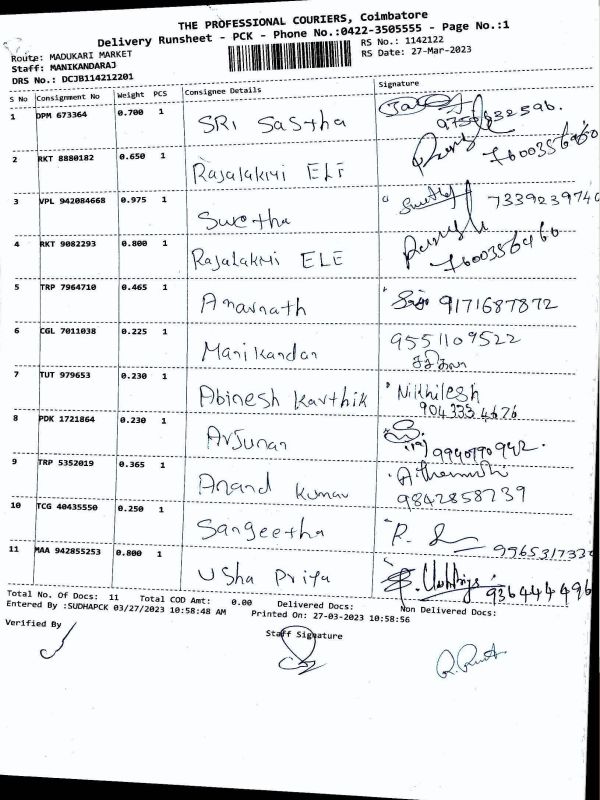 THE PROFESSIONAL COURIERS, Coimbatore
Delivery Runsheet - PCK - Phone No.:0422-3505555 - Page No.:1
Route: MADUKARI MARKET
RS No.: 1142122
Staff: MANIKANDARAJ
RS Date: 27-Mar-2023
DRS No.: DCJB114212201
S No Consignment No Weight PCS Consignee Details Signature
1 DPM 673364 0.700 1 SRI Sastha
2 RKT 8880182 0.650 1 Rajalakmi ELE 7600356460
3 VPL 942084668 0.975 1 Swetha 733923974
4 RKT 9082293 0.800 1 Rajalakmi ELE 7600356460
5 TRP 7964710 0.465 1 Amarnath 9171687872
6 CGL 7011038 0.225 1 Manikandan 9551109522
7 TUT 979653 0.230 1 Abinesh Karthik Nikhilesh
904 333 4626
8 PDK 1721864 0.230 1 Arjunan 9940790942.
9 TRP 5352019 0.365 1 Anand Kumar
9842858739
10 TCG 40435550 0.250 1 Sangeetha R. 996531733
11 MAA 942855253 0.800 1 Usha Priya 936444496
Total No. Of Docs: 11 Total COD Amt: 0.00 Delivered Docs: Non Delivered Docs:
Entered By :SUDHAPCK 03/27/2023 10:58:48 AM Printed On: 27-03-2023 10:58:56
Verified By
Staff Signature